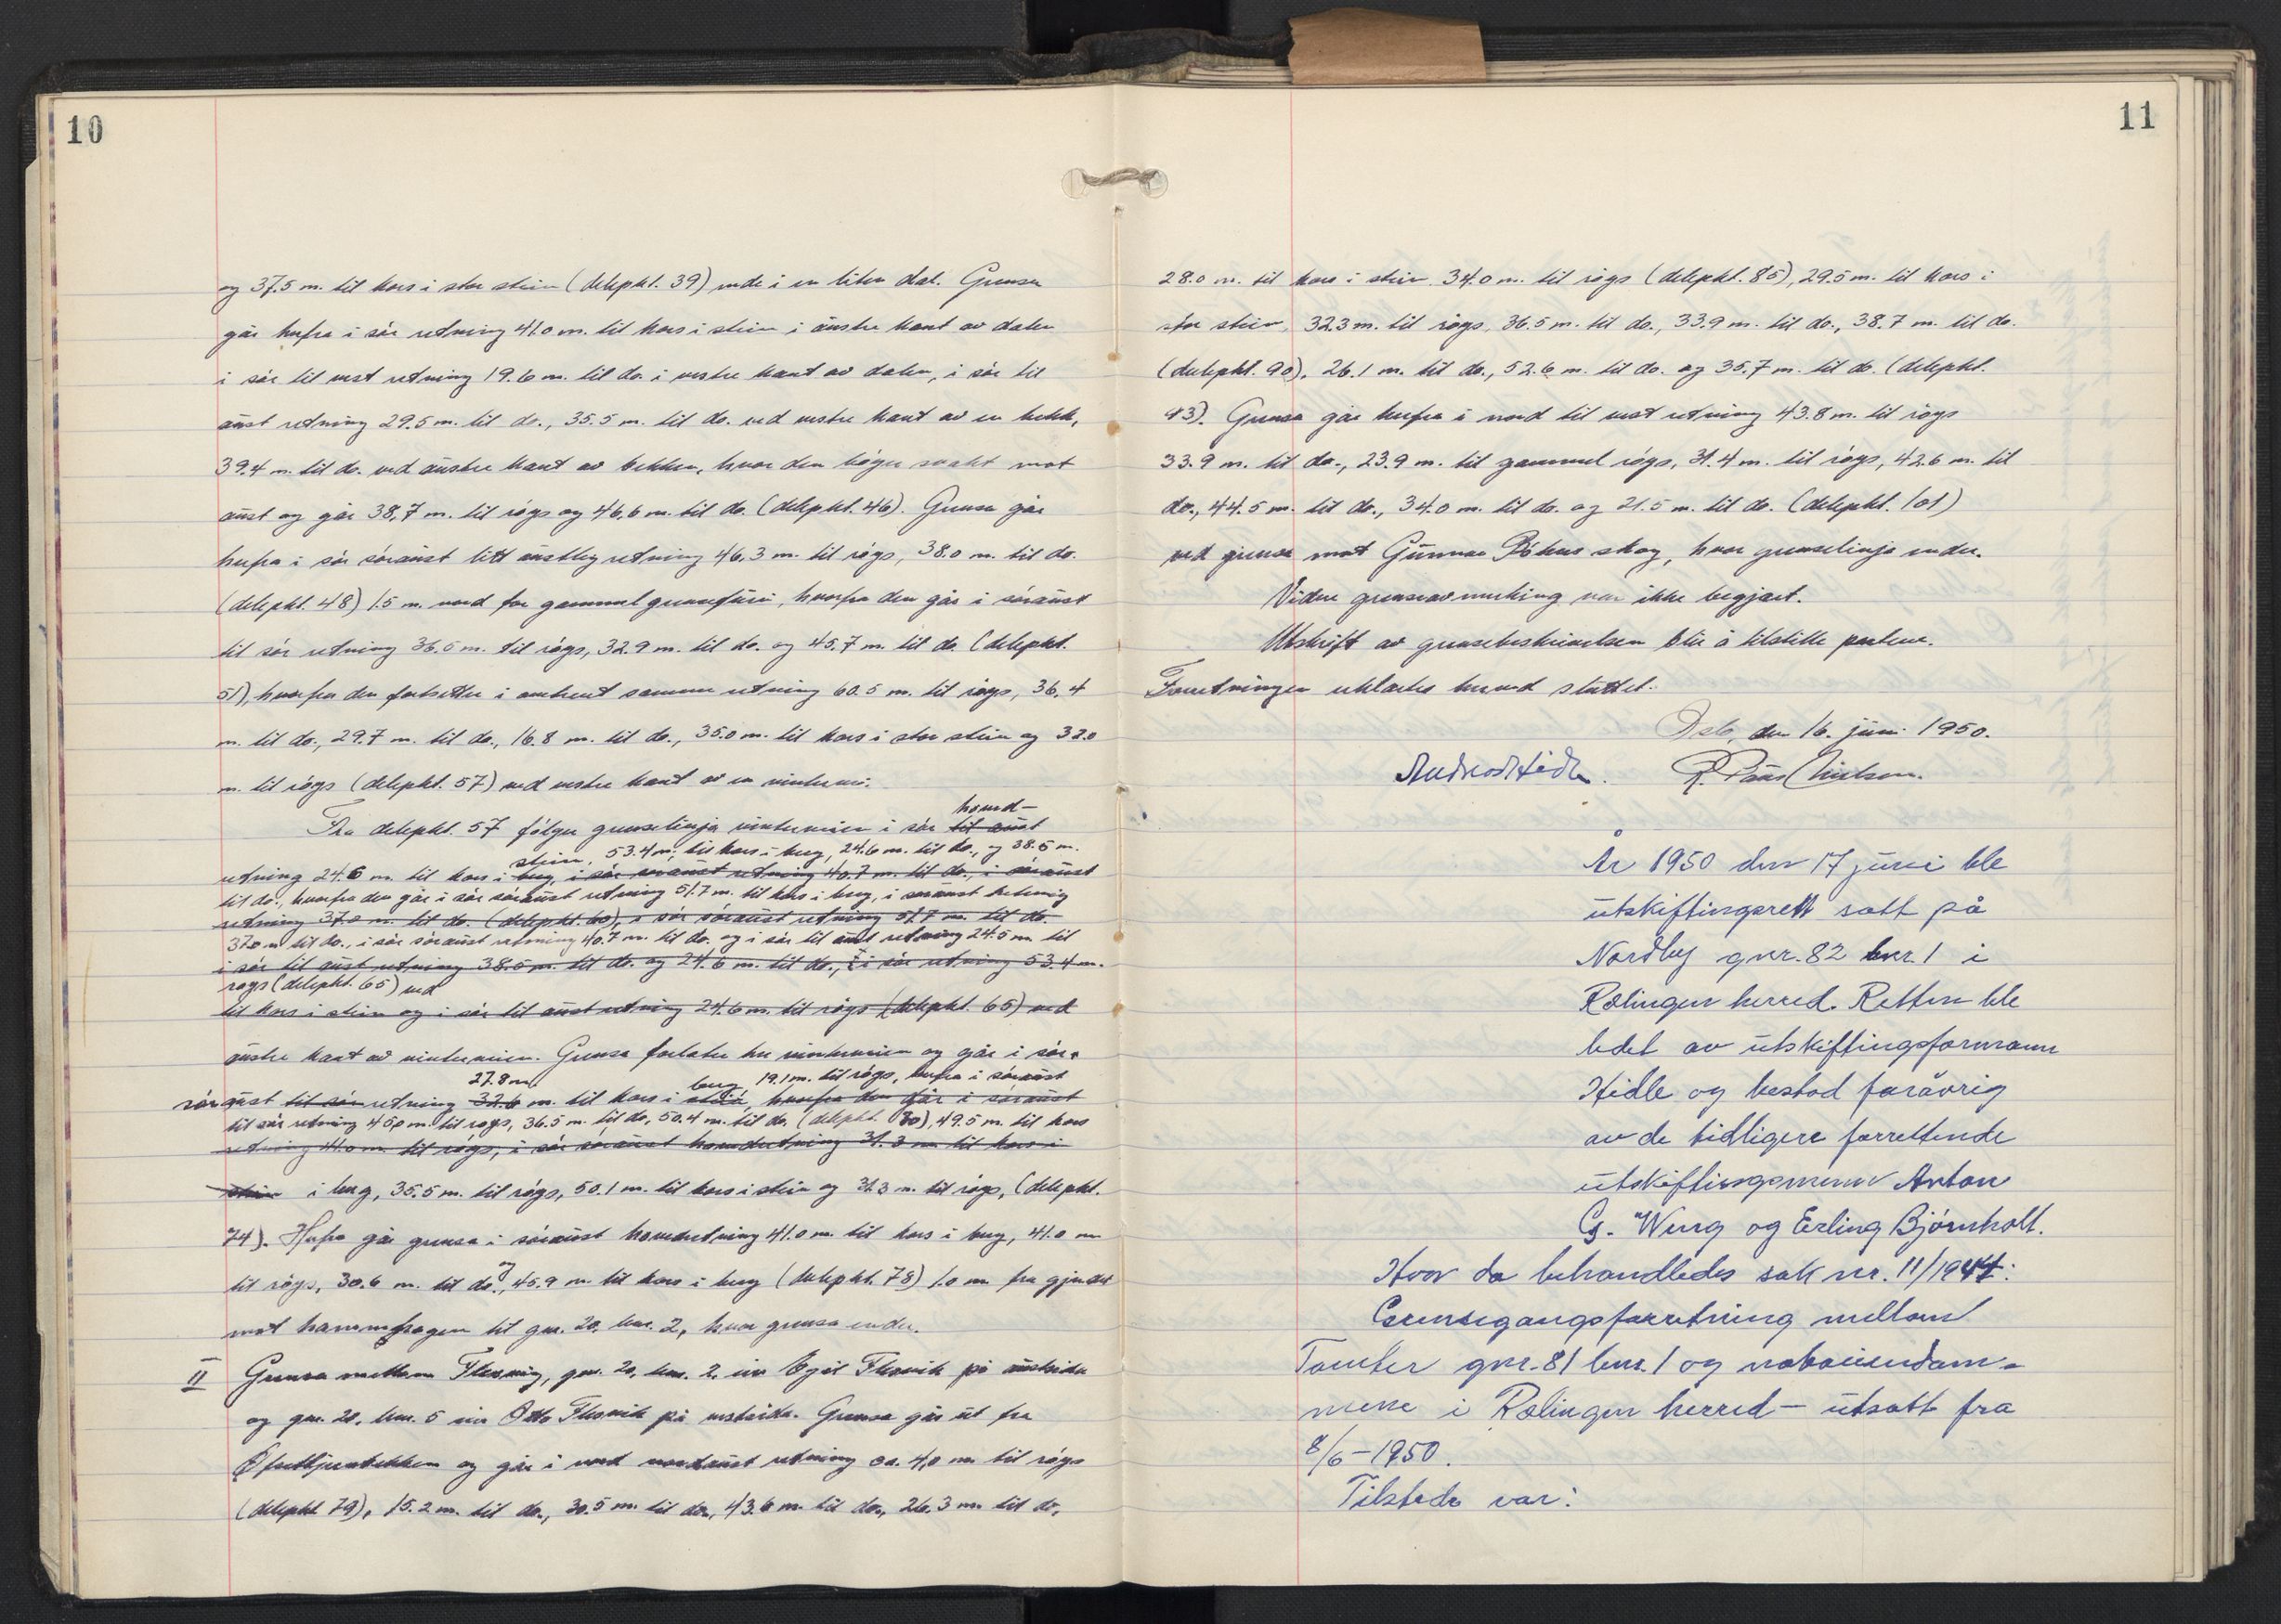 10
og 37.5 m. til kors i stor stein (delepkt. 39) nede i en liten dal. Grensa
går herfra i sør retning 41.0 m. til kors i stein i austre kant av dalen
i sør til vest retning 19.6 m. til do. i vestre kant av dalen, i sør til
aust retning 29.5 m. til do., 35.5 m. til do. ved vestre kant av en bekk,
39.4 m. til do. ved austre kant av bekken, hvor den bøyer svakt mot
aust og går 38,7 m. til røys og 46,6 m. til do. (delepkt. 46). Grensa går
herfra i sør søraust litt austleg retning 46,3 m. til røys, 38.0 m. til do.
(delepkt. 48) 1.5 m. nord for gammel grensefuru, hvorfra den går i søraust
til sør retning 36.5 m. til røys, 32.9 m. til do. og 45.7 m. til do. (delepkt.
51), hvorfra den fortsetter i omtrent samme retning 60.5 m. til røys, 36.4
m. til do., 29.7 m. til do., 16.8 m. til do., 35.0 m. til kors i stor stein og 32.0
m. til røys (delepkt. 57) ved vestre kant av en vintervei.
hoved-
Fra delepkt. 57 følger grenselinja vinterveien i sør til aust
stein, 53.4 m. til kors i berg, 24.6 m. til do., og 38.5 m.
retning 24.6 m. til kors i berg, i sør søraust retning 40.7 m. til do., i søraust
til do., hvorfra den går i sør søraust retning 51.7 m. til kors i berg, i søraust retning
retning 37.0 m. til do. (delepkt. 60), i sør søraust retning 51.7 m. til do.
37.0 m. til do., i sør søraust retning 40.7 m. til do. og i sør til aust retning 24.5 m. til
i sør til aust retning 38.5 m. til do. og 24.6 m. til do., i sør retning 53.4 m.
røys (delepkt. 65) ved
til kors i stein og i sør til aust retning 24.6 m. til røys (delepkt. 65) ved
austre kant av vinterveien. Grensa forlater her vinterveien og går i sør
27.8 m. berg, 19.1 m. til røys, herfra i søraust
søraust til sør retning 32.6 m. til kors i stein, hvorfra den går i søraust
til sør retning 45,0 m. til røys, 36.5 m. til do., 50.4 m. til do. (delepkt. 70), 49.5 m. til kors
retning 41.0 m. til røys, i sør søraust hovedretning 31.3 m. til kors i
stein i berg, 35.5 m. til røys, 50.1 m. til kors i stein og 31.3 m. til røys, (delepkt.
74). Herfra går grensa i søraust hovedretning 41.0 m. til kors i berg, 41.0 m.
til røys, 30.6 m. til do., og 45.9 m. til kors i berg (delepkt. 78) 1.0 m. fra gjerdet
mot havnehagen til gnr. 20, bnr. 2, hvor grensa ender.
II Grensa mellom gnr. 20, bnr. 2, eier Egil på austsida
og gnr. 20, bnr. 5 eier Otto på vestsida. Grensa går ut fra
og går i nord nordaust retning ca. 4,0 m. til røys
(delepkt. 79), 15.2 m. til do., 30.5 m. til do., 43.6 m. til do., 26.3 m. til do.,
11
28.0 m. til kors i stein, 34.0 m. til røys (delepkt. 85), 29.5 m. til kors i
stor stein, 32.3 m. til røys, 36.5 m. til do., 33.9 m. til do., 38.7 m. til do.
(delepkt. 90), 26.1 m. til do., 52.6 m. til do. og 35.7 m. til do. (delepkt.
93). Grensa går herfra i nord til vest retning 43.8 m. til røys
33.9 m. til do., 23.9 m. til gammel røys, 31.4 m. til røys, 42.6 m. til
do., 44.5 m. til do., 34.0 m. til do. og 21.5 m. til do. (delepkt. 101)
ved grensa mot Gunnar skog, hvor grenselinja ender.
Videre grenseavmerking var ikke begjært.
Utskrift av grensebeskrivelsen blir å tilstille partene.
Forretningen erklærtes hermed sluttet.
Oslo, den 16. juni 1950.
År 1950 den 17 juni ble
utskiftingsrett satt på
Nordby gnr. 82 bnr. 1 i
Rælingen herred. Retten ble
ledet av utskiftingsformann
Hidle og bestod forøvrig
av de tidligere forrettende
utskiftingsmenn Anton
G. Weng og Erling Bjørnholt.
Hvor da behandledes sak nr. 11/1947:
Grensegangsforretning mellom
Tomter gnr. 81 bnr. 1 og naboeiendom-
mene i Rælingen herred – utsatt fra
8/6 – 1950.
Tilstede var: